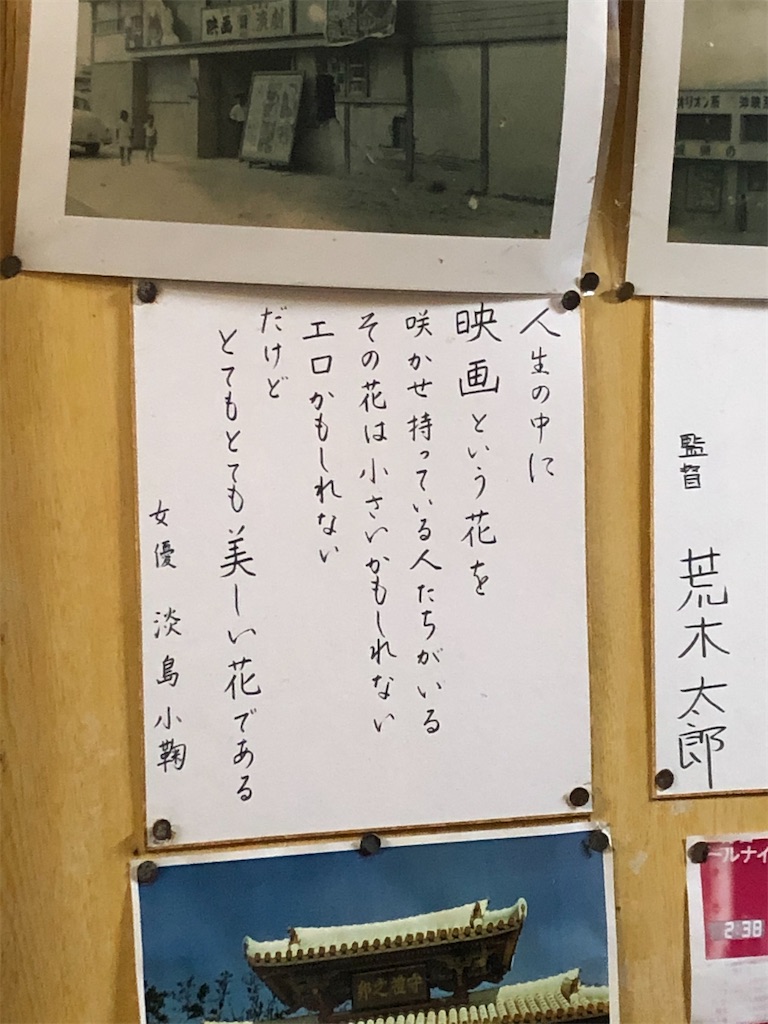 映画
演劇
人生の中に
映画という花を
咲かせ持っている人たちがいる
その花は小さいかもしれない
エロかもしれない
だけど
とてもとても美しい花である
女優 淡島小鞠
監督 荒木太郎
守禮之邦
ールナイ
2:38